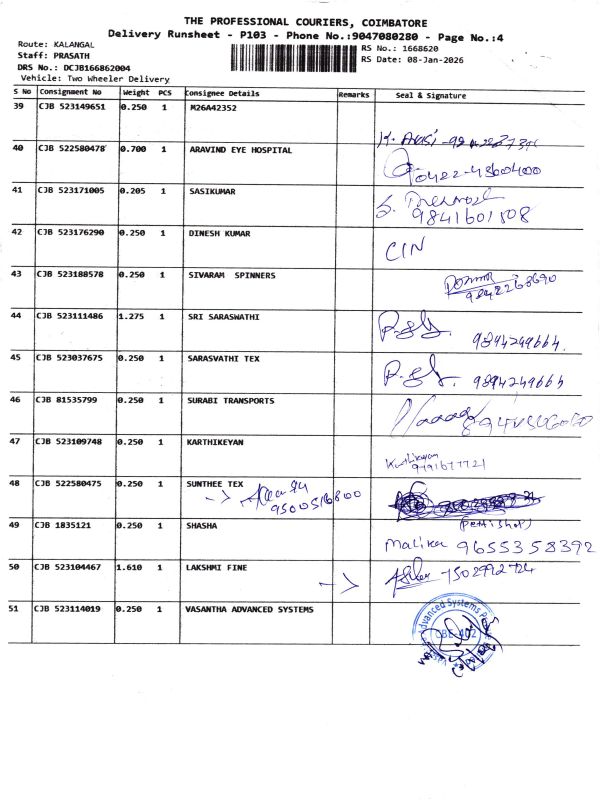 THE PROFESSIONAL COURIERS, COIMBATORE
Delivery Runsheet - P103 - Phone No.:9047080280 - Page No.:4
Route: KALANGAL
RS No.: 1668620
Staff: PRASATH
RS Date: 08-Jan-2026
DRS No.: DCJB166862004
Vehicle: Two Wheeler Delivery
S No Consignment No Weight PCS Consignee Details Remarks Seal & Signature
39 CJB 523149651 0.250 1 M26A42352
40 CJB 522580478 0.700 1 ARAVIND EYE HOSPITAL 0422-4360400
41 CJB 523171005 0.205 1 SASIKUMAR
9841601508
42 CJB 523176290 0.250 1 DINESH KUMAR CIN
43 CJB 523188578 0.250 1 SIVARAM SPINNERS
9842268690
44 CJB 523111486 1.275 1 SRI SARASWATHI 9894249664.
45 CJB 523037675 0.250 1 SARASVATHI TEX 9894249664
46 CJB 81535799 0.250 1 SURABI TRANSPORTS
47 CJB 523109748 0.250 1 KARTHIKEYAN Karthikeyan
48 CJB 522580475 0.250 1 SUNTHEE TEX
9500516800
49 CJB 1835121 0.250 1 SHASHA (Petti shop)
Malika 9655358392
50 CJB 523104467 1.610 1 LAKSHMI FINE 7502992724
51 CJB 523114019 0.250 1 VASANTHA ADVANCED SYSTEMS
Advanced Systems
CBE-402